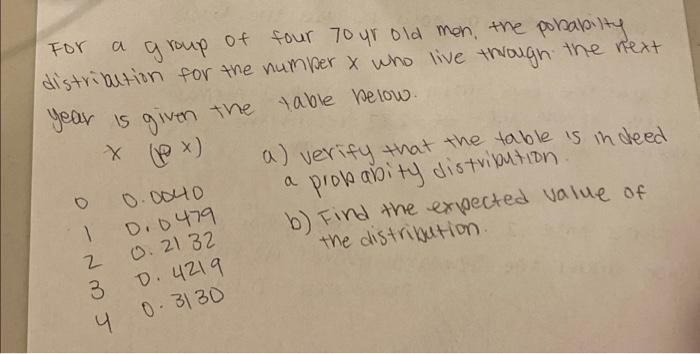 For a group of four 70 yr old men, the pobabilty
distribution for the number x who live through the next
year is given the table below.
x (p x)
0 0.0040
1 0.0479
2 0.2132
3 0.4219
4 0.3130
a) verify that the table is indeed
a probabity distribution.
b) Find the expected value of
the distribution.